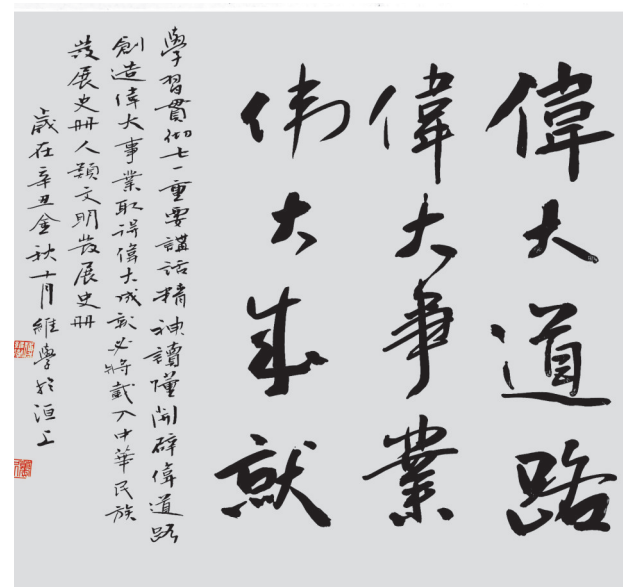 偉大道路
偉大事業
伟大成就
學習貫彻七一重要講話精神讀懂開辟偉道路
創造偉大事業取得偉大成就必將載入中華民族
發展史册人類文明發展史册
歲在辛丑金秋十月維學於洹上